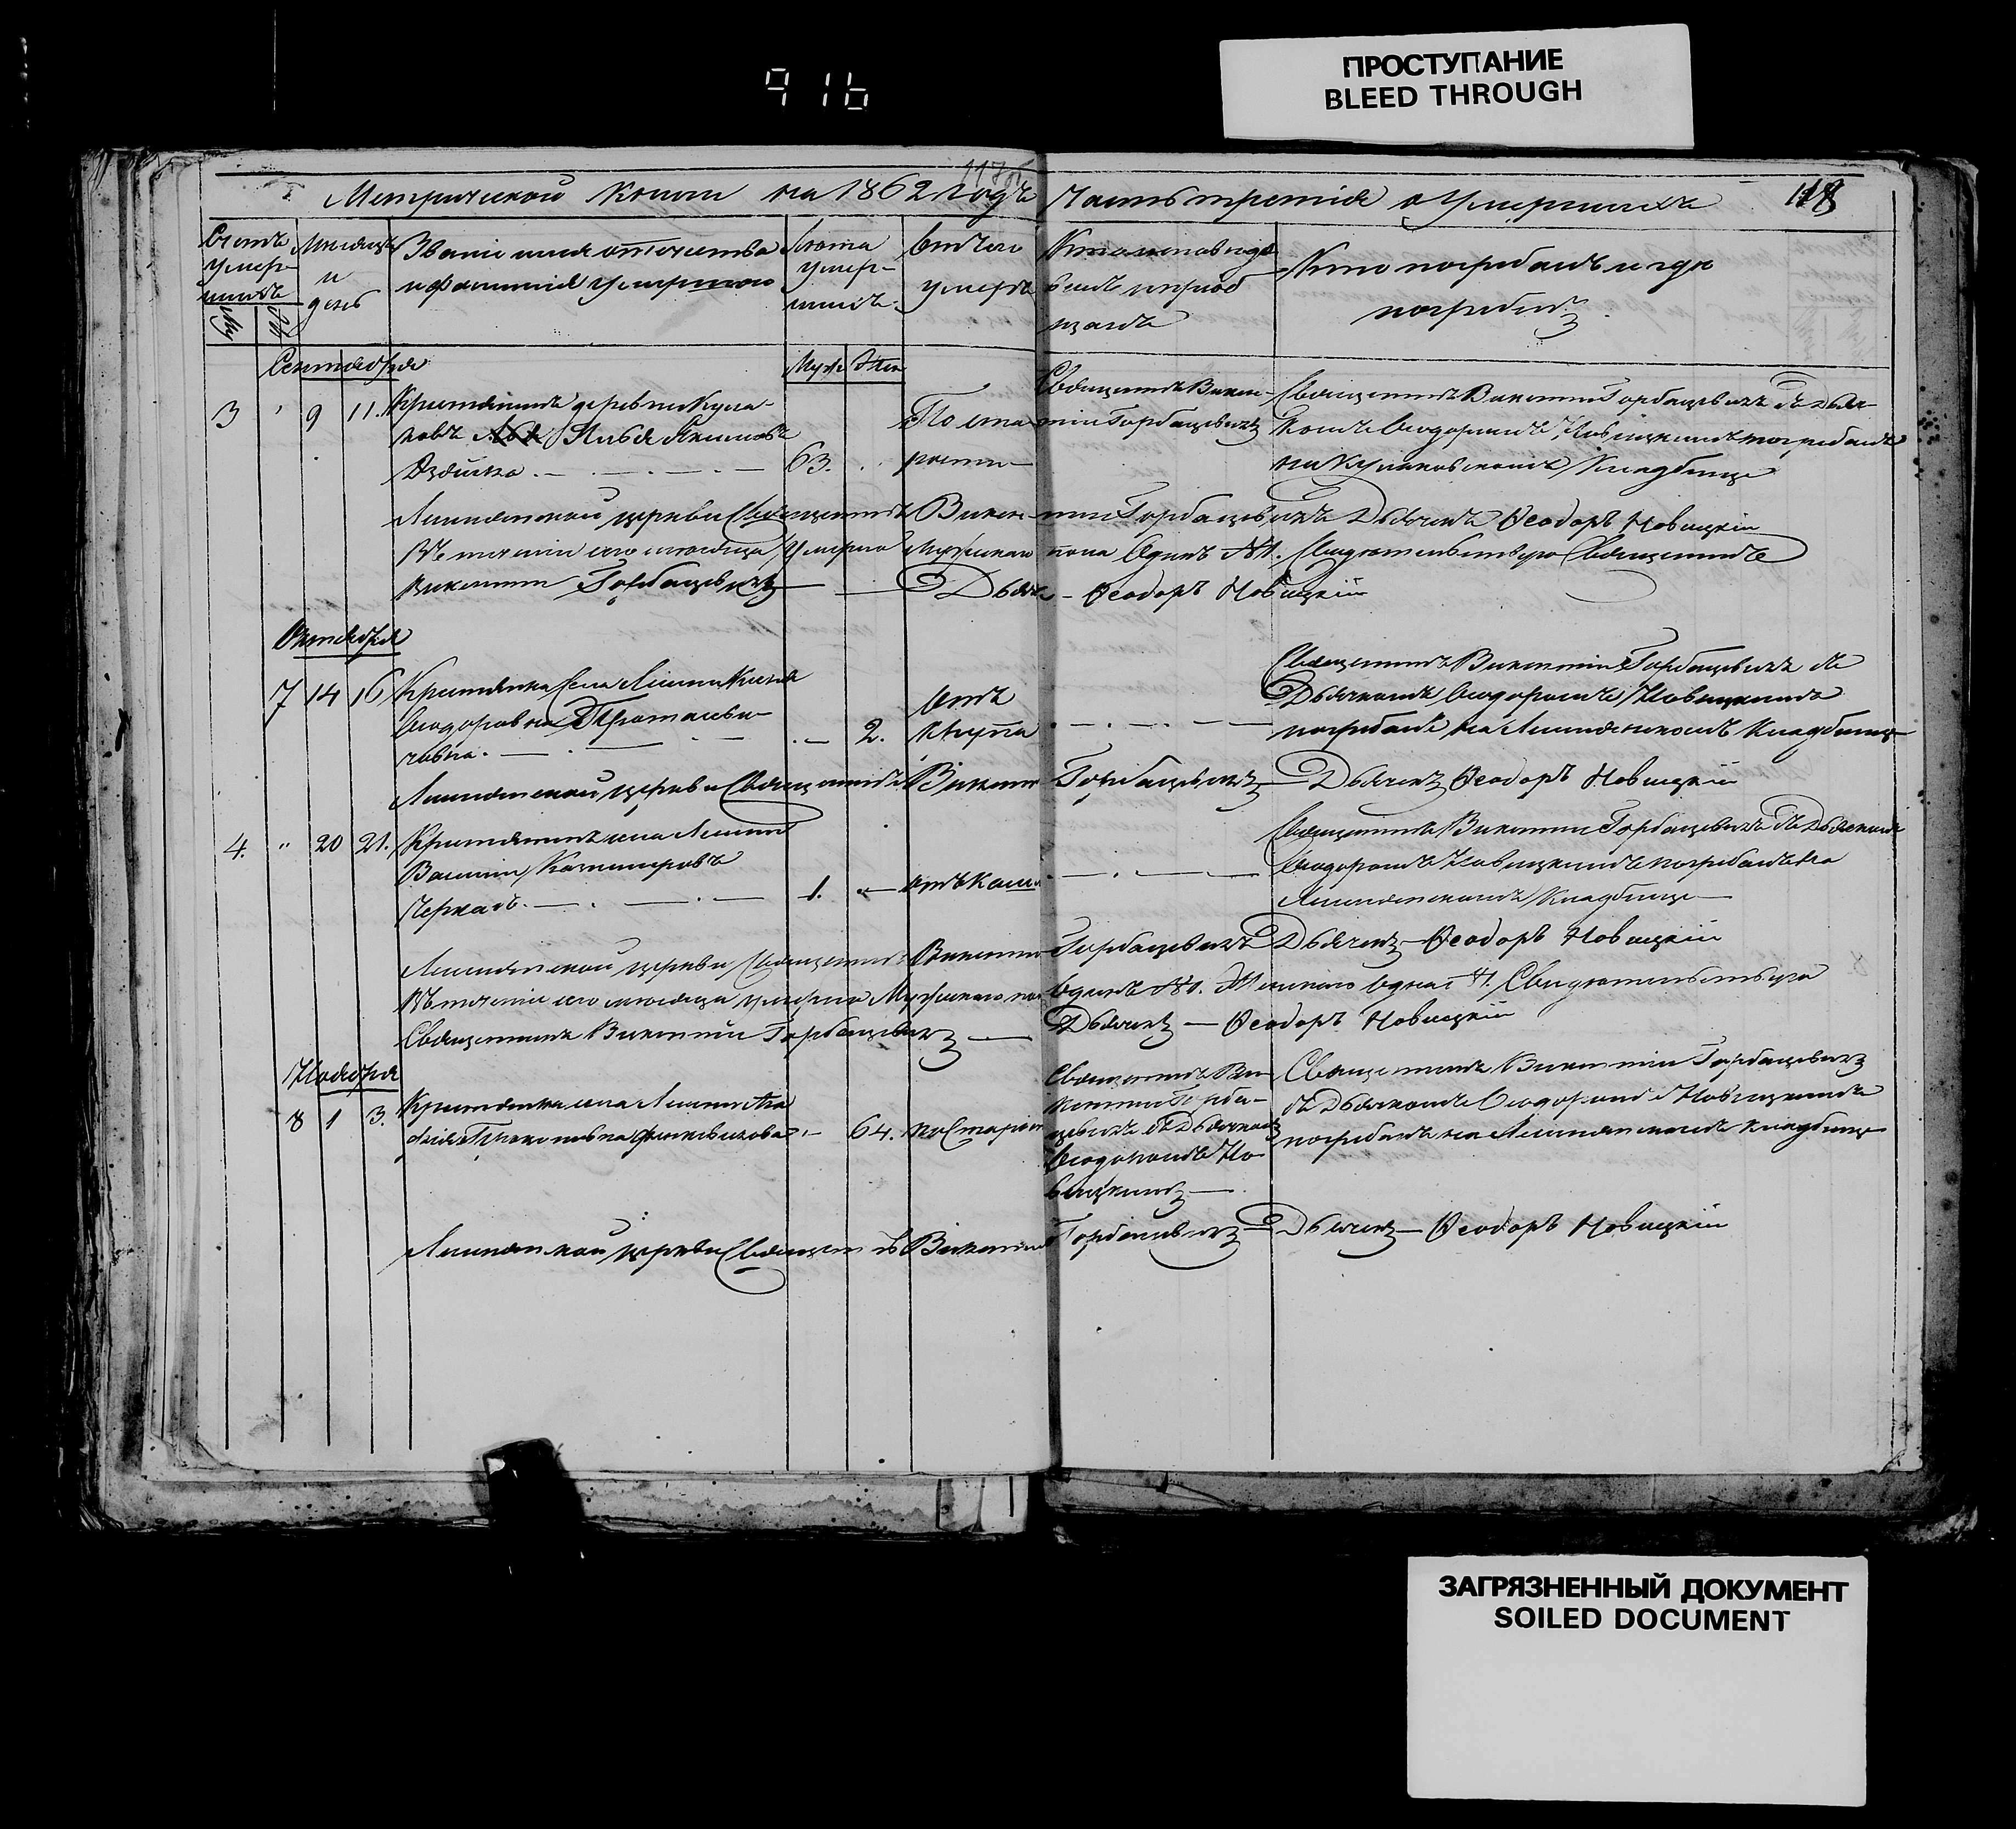 916
ПРОСТУПАНИЕ
BLEED THROUGH
Метрической Книги на 1862 годъ Часть третія о Умершихъ 118
Счетъ умер-шихъ
Месяцъ и день
Званіе имя отчество и фамилія умершаго
Лета умер-шихъ
Отъ чего умеръ
Кто исповедо-валъ и приоб-щалъ
Кто погребалъ и где погребенъ
Сентября
Муж Жен
3 9 11. Крестьянинъ деревни Кула-
ковъ Илья Якимовъ
63.
По ста-
рости
Священникъ Викен-
тій Горбацевичъ
Священникъ Викентій Горбацевичъ съ Дьяч-
комъ Феодоромъ Новицкимъ погребалъ
на Кулаковскомъ Кладбище
церкви Священникъ Викентій Горбацевичъ Дьячекъ Феодоръ Новицкій
Въ теченіи сего месяца умерло мужескаго пола Одинъ №1. Свидетельствую Священникъ
Викентій Горбацевичъ Дьячекъ Феодоръ Новицкій
Октября
7 14 16 Крестьянка Села
Феодоровна
2.
отъ
Крупа
Священникъ Викентій Горбацевичъ съ
Дьячкомъ Феодоромъ Новицкимъ
погребалъ на Кладбище
церкви Священникъ Викентій Горбацевичъ Дьячекъ Феодоръ Новицкій
4. " 20 21. Крестьянинъ села
Василій Казимировъ
1. отъ Кашля
Священникъ Викентій Горбацевичъ съ Дьячкомъ
Феодоромъ Новицкимъ погребалъ на
Кладбище
церкви Священникъ Викентій Горбацевичъ Дьячекъ Феодоръ Новицкій
Въ теченіи сего месяца умерло Мужескаго пола Одинъ №1. Женскаго одна 1. Свидетельствую
Священникъ Викентій Горбацевичъ Дьячекъ Феодоръ Новицкій
Ноября
8 1 3. Крестьянка села
64. по Старости
Священникъ Ви-
кентій Горба-
цевичъ съ Дьячкомъ
Феодоромъ Но-
вицкимъ
Священникъ Викентій Горбацевичъ
съ Дьячкомъ Феодоромъ Новицкимъ
погребалъ на кладбище
церкви Священникъ Викентій Горбацевичъ Дьячекъ Феодоръ Новицкій
ЗАГРЯЗНЕННЫЙ ДОКУМЕНТ
SOILED DOCUMENT